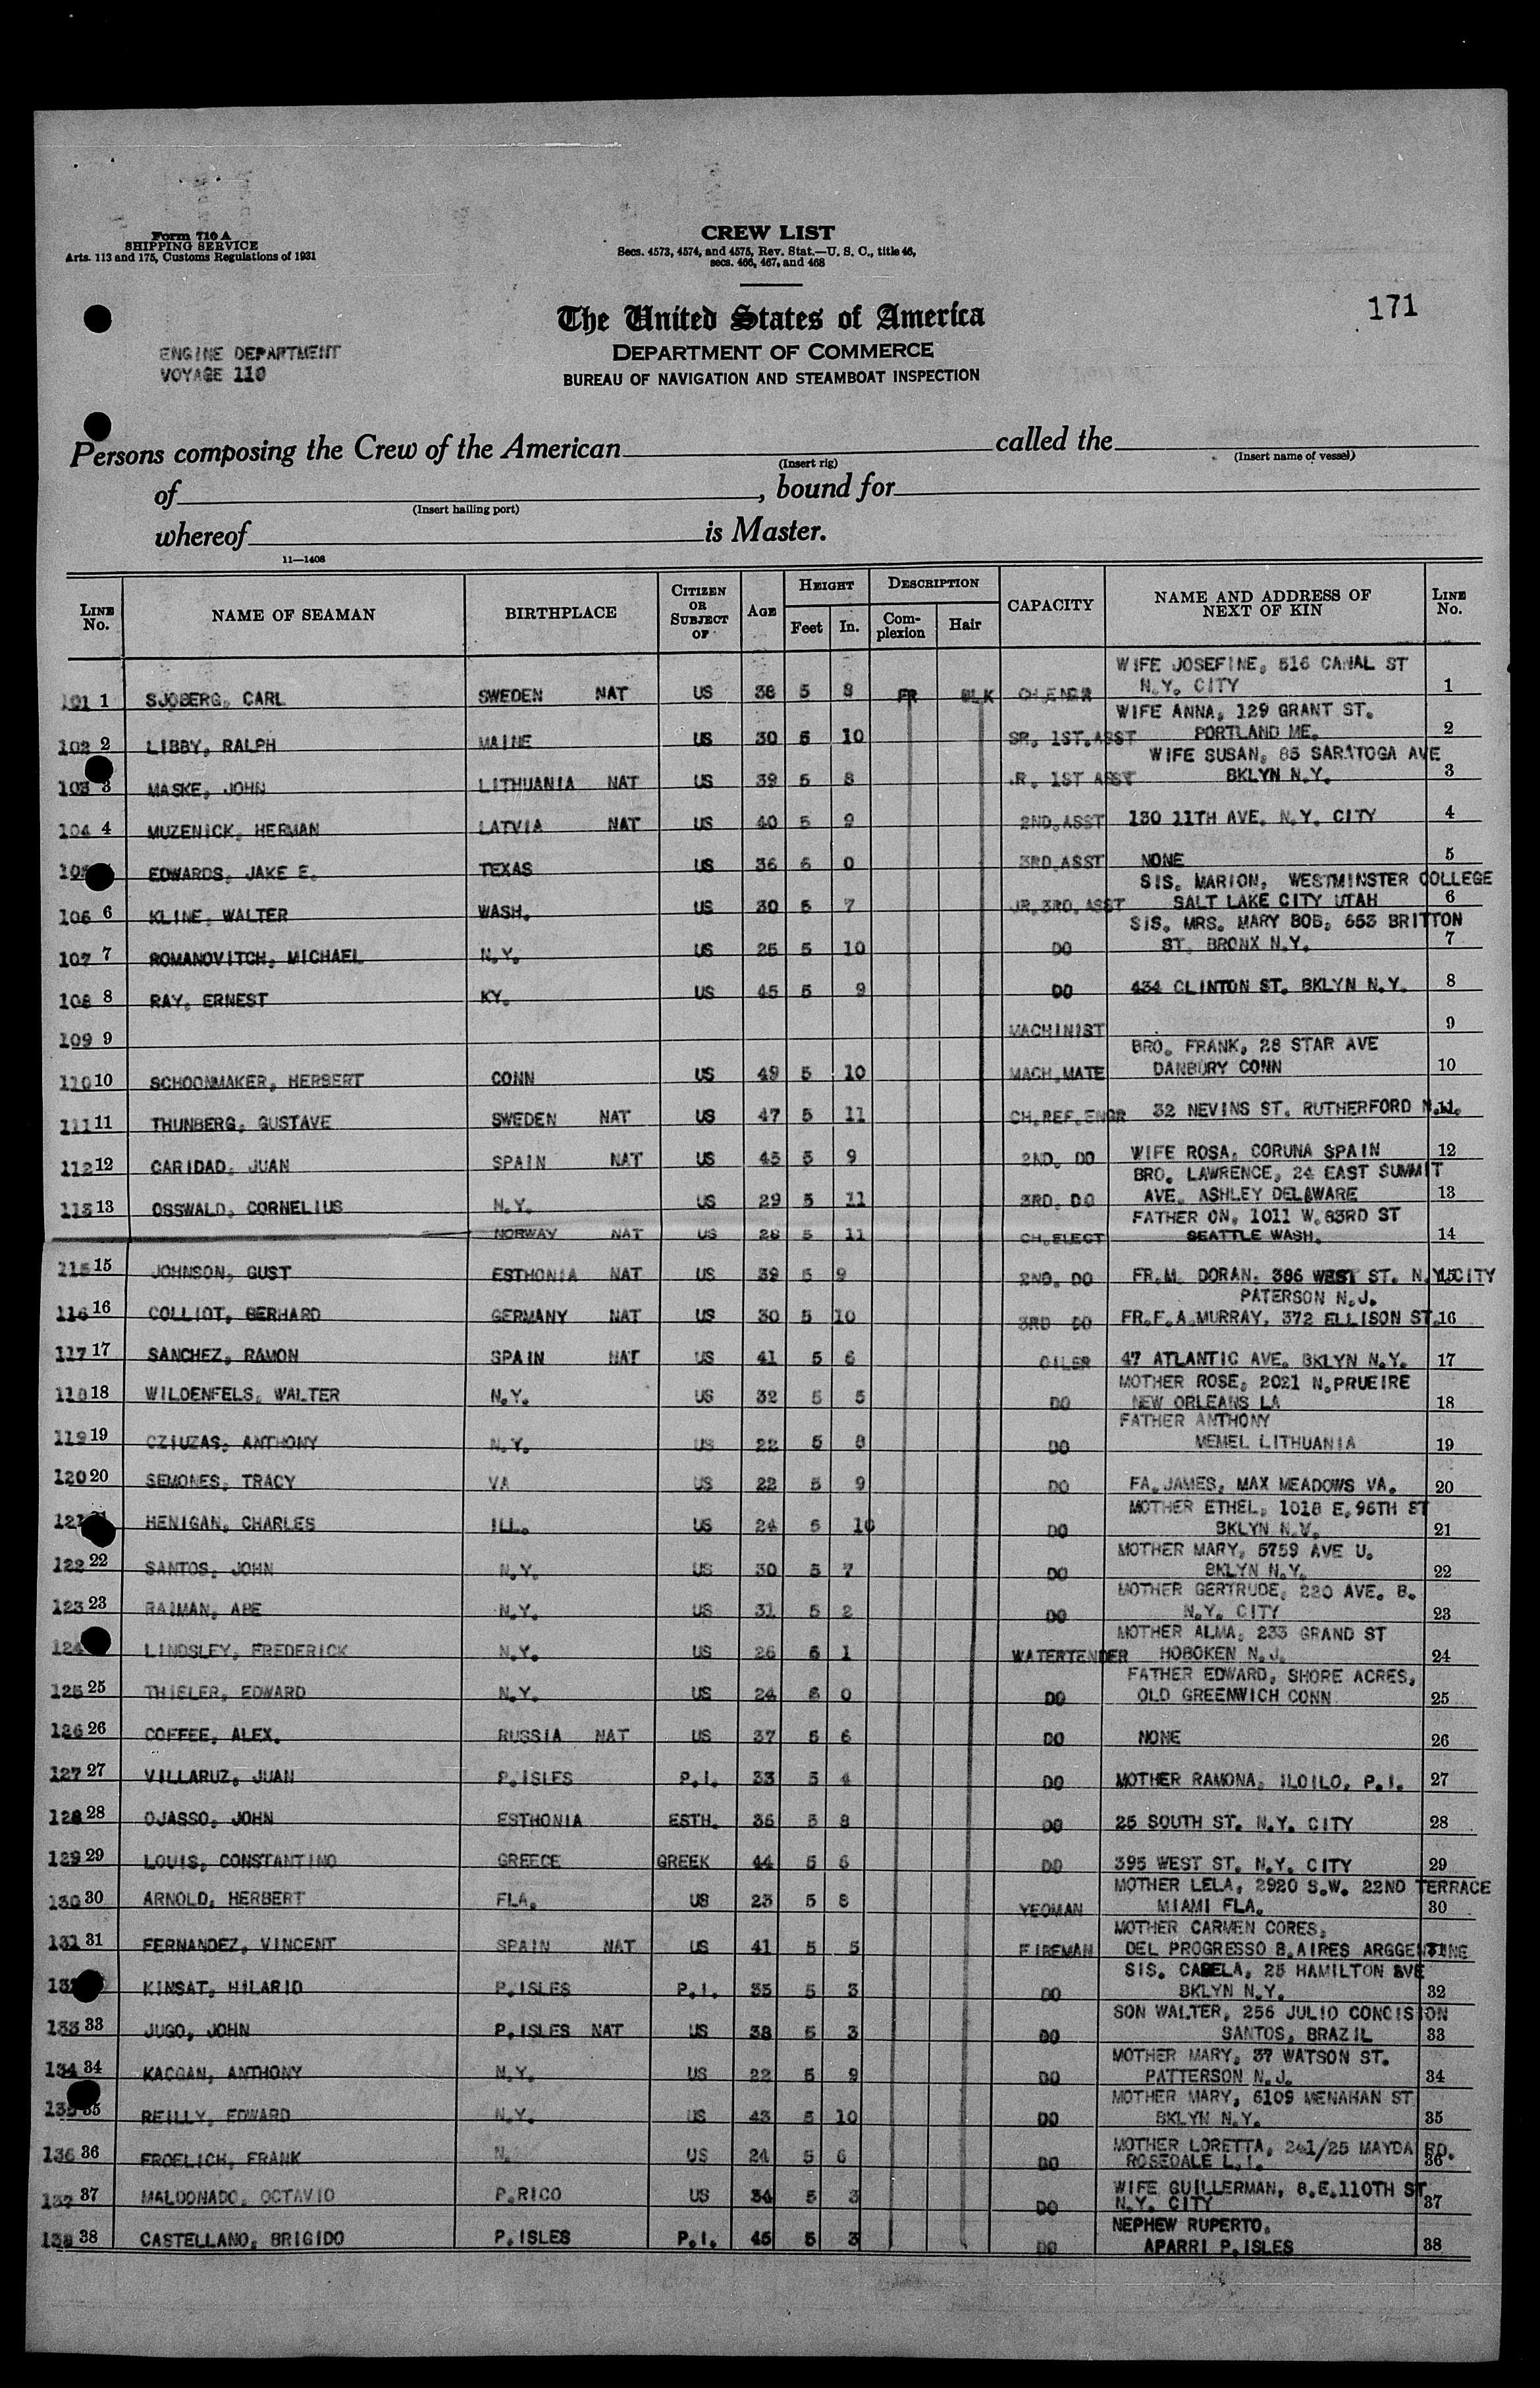 Form 710 A
SHIPPING SERVICE
Arts. 113 and 175, Customs Regulations of 1931
CREW LIST
Secs. 4573, 4574, and 4575, Rev. Stat.—U. S. C., title 46,
secs. 466, 467, and 468
171
The United States of America
DEPARTMENT OF COMMERCE
BUREAU OF NAVIGATION AND STEAMBOAT INSPECTION
ENGINE DEPARTMENT
VOYAGE 110
Persons composing the Crew of the American called the
(Insert rig) (Insert name of vessel)
of , bound for
(Insert hailing port)
whereof is Master.
11—1408
LINE No. NAME OF SEAMAN BIRTHPLACE CITIZEN OR SUBJECT OF AGE HEIGHT Feet In. DESCRIPTION Complexion Hair CAPACITY NAME AND ADDRESS OF NEXT OF KIN LINE No.
WIFE JOSEFINE, 516 CANAL ST
101 1 SJOBERG, CARL SWEDEN NAT US 38 5 8 FR BLK CH.ENGR N.Y. CITY 1
WIFE ANNA, 129 GRANT ST.
102 2 LIBBY, RALPH MAINE US 30 5 10 SR. 1ST.ASST PORTLAND ME. 2
WIFE SUSAN, 85 SARATOGA AVE
103 3 MASKE, JOHN LITHUANIA NAT US 39 5 8 .R. 1ST ASST BKLYN N.Y. 3
104 4 MUZENICK, HERMAN LATVIA NAT US 40 5 9 2ND.ASST 130 11TH AVE. N.Y. CITY 4
105 EDWARDS, JAKE E. TEXAS US 36 6 0 3RD.ASST NONE 5
SIS. MARION, WESTMINSTER COLLEGE
106 6 KLINE, WALTER WASH. US 30 5 7 JR.3RD.ASST SALT LAKE CITY UTAH 6
SIS. MRS. MARY BOB, 653 BRITTON
107 7 ROMANOVITCH, MICHAEL N.Y. US 25 5 10 DO ST. BRONX N.Y. 7
108 8 RAY, ERNEST KY. US 45 5 9 DO 434 CLINTON ST. BKLYN N.Y. 8
109 9 MACHINIST 9
BRO. FRANK, 28 STAR AVE
110 10 SCHOONMAKER, HERBERT CONN US 49 5 10 MACH.MATE DANBURY CONN 10
111 11 THUNBERG, GUSTAVE SWEDEN NAT US 47 5 11 CH.REF.ENGR 32 NEVINS ST. RUTHERFORD N.J. 11
112 12 CARIDAD, JUAN SPAIN NAT US 45 5 9 2ND. DO WIFE ROSA, CORUNA SPAIN 12
BRO. LAWRENCE, 24 EAST SUMMIT
113 13 OSSWALD, CORNELIUS N.Y. US 29 5 11 3RD. DO AVE. ASHLEY DELAWARE 13
FATHER ON, 1011 W.83RD ST
NORWAY NAT US 28 5 11 CH.ELECT SEATTLE WASH. 14
115 15 JOHNSON, GUST ESTHONIA NAT US 39 5 9 2ND. DO FR.M. DORAN. 386 WEST ST. N.Y.CITY 15
PATERSON N.J.
116 16 COLLIOT, BERHARD GERMANY NAT US 30 5 10 3RD DO FR.F.A.MURRAY, 372 ELLISON ST. 16
117 17 SANCHEZ, RAMON SPAIN NAT US 41 5 6 OILER 47 ATLANTIC AVE. BKLYN N.Y. 17
MOTHER ROSE, 2021 N.PRUEIRE
118 18 WILDENFELS, WALTER N.Y. US 32 5 5 DO NEW ORLEANS LA 18
FATHER ANTHONY
119 19 CZIUZAS, ANTHONY N.Y. US 22 5 8 DO MEMEL LITHUANIA 19
120 20 SEMONES, TRACY VA US 22 5 9 DO FA.JAMES, MAX MEADOWS VA. 20
MOTHER ETHEL, 1018 E.96TH ST
121 HENIGAN, CHARLES ILL. US 24 5 10 DO BKLYN N.Y. 21
MOTHER MARY, 5759 AVE U.
122 22 SANTOS, JOHN N.Y. US 30 5 7 DO BKLYN N.Y. 22
MOTHER GERTRUDE, 220 AVE. B.
123 23 RAIMAN, ABE N.Y. US 31 5 2 DO N.Y. CITY 23
MOTHER ALMA, 233 GRAND ST
124 LINDSLEY, FREDERICK N.Y. US 26 6 1 WATERTENDER HOBOKEN N.J. 24
FATHER EDWARD, SHORE ACRES,
125 25 THIELER, EDWARD N.Y. US 24 6 0 DO OLD GREENWICH CONN 25
126 26 COFFEE, ALEX. RUSSIA NAT US 37 5 6 DO NONE 26
127 27 VILLARUZ, JUAN P.ISLES P.I. 33 5 4 DO MOTHER RAMONA, ILOILO, P.I. 27
128 28 OJASSO, JOHN ESTHONIA ESTH. 36 5 8 DO 25 SOUTH ST. N.Y. CITY 28
129 29 LOUIS, CONSTANTINO GREECE GREEK 44 5 6 DO 395 WEST ST. N.Y. CITY 29
MOTHER LELA, 2920 S.W. 22ND TERRACE
130 30 ARNOLD, HERBERT FLA. US 23 5 8 YEOMAN MIAMI FLA. 30
MOTHER CARMEN CORES,
131 31 FERNANDEZ, VINCENT SPAIN NAT US 41 5 5 FIREMAN DEL PROGRESSO B.AIRES ARGGENTINE 31
SIS. CABELA, 25 HAMILTON AVE
132 KINSAT, HILARIO P.ISLES P.I. 35 5 3 DO BKLYN N.Y. 32
SON WALTER, 256 JULIO CONCISION
133 33 JUGO, JOHN P.ISLES NAT US 38 5 3 DO SANTOS, BRAZIL 33
MOTHER MARY, 37 WATSON ST.
134 34 KACGAN, ANTHONY N.Y. US 22 5 9 DO PATTERSON N.J. 34
MOTHER MARY, 6109 MENAHAN ST
135 35 REILLY, EDWARD N.Y. US 43 5 10 DO BKLYN N.Y. 35
MOTHER LORETTA, 241/25 MAYDA RD.
136 36 FROELICH, FRANK N. US 24 5 6 DO ROSEDALE L.I. 36
WIFE GUILLERMAN, 8.E.110TH ST
137 37 MALDONADO, OCTAVIO P.RICO US 34 5 3 DO N.Y. CITY 37
NEPHEW RUPERTO.
138 38 CASTELLANO, BRIGIDO P.ISLES P.I. 45 5 3 DO APARRI P.ISLES 38